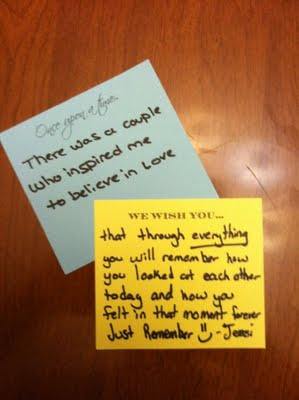 Once upon a time...
There was a couple
who inspired me
to believe in Love
WE WISH YOU...
that through everything
you will remember how
you looked at each other
today and how you
felt in that moment forever
Just Remember